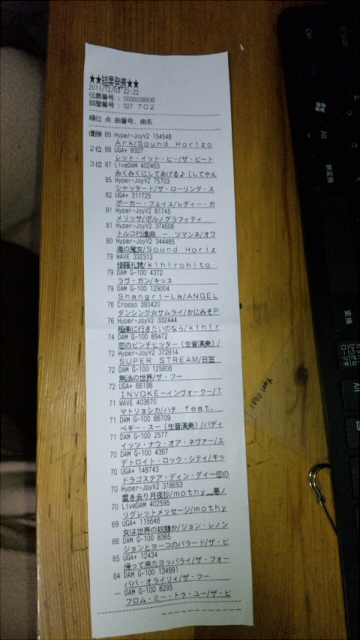 ★★結果発表★★
2011/12/03 22:22
伝票番号：0000038936
部屋番号：027 702
順位 点 曲番号、曲名
優勝 89 Hyper-JoyV2 154548
Ark/Sound Horizo
2位 88 UGA+ 8327
レット・イット・ビー/ザ・ビート
3位 87 LiveDAM 402463
みくみくにしてあげる♪【してやん
85 Hyper-JoyV2 75703
シャッタード/ザ・ローリング・ス
82 UGA+ 311725
ポーカー・フェイス/レディー・ガ
81 Hyper-JoyV2 61745
メリッサ/ポルノグラフィティ
81 Hyper-JoyV2 374506
トルコ行進曲 － ツマンネ/オワ
80 Hyper-JoyV2 344485
海の魔女/Sound Horiz
79 WAVE 332313
修羅礼賛/kihirohito
79 DAM G-100 4372
ラヴ・ガン/キッス
79 DAM G-100 129004
Shangri-La/ANGEL
76 Crosso 393420
ダンシング☆サムライ/かにみそP
76 Hyper-JoyV2 332444
極楽に行きたいのなら/kihir
74 DAM G-100 69472
恋のピンチヒッター(生音演奏)/
72 Hyper-JoyV2 372614
SUPER STREAM/日笠
72 DAM G-100 125809
無法の世界/ザ・フー
72 UGA+ 66196
INVOKE－インヴォーク－/T
71 WAVE 403670
マトリョシカ/ハチ feat.
71 DAM G-100 66709
ペギー・スー(生音演奏)/バディ
71 DAM G-100 2577
イッツ・ナウ・オア・ネヴァー/エ
70 DAM G-100 4367
デトロイト・ロック・シティ/キッ
70 UGA+ 148743
ドラゴステア・ディン・テイ～恋の
70 Hyper-JoyV2 318653
置き去り月夜抄/mothy_悪ノ
70 LiveDAM 402595
リグレットメッセージ/mothy
69 UGA+ 115648
女は世界の奴隷か/ジョン・レノン
66 DAM G-100 8365
ジョンとヨーコのバラード/ザ・ビ
65 UGA+ 12434
帰って来たヨッパライ/ザ・フォー
64 DAM G-100 134991
ババ・オライリィ/ザ・フー
-- DAM G-100 8295
フロム・ミー・トゥ・ユー/ザ・ビ